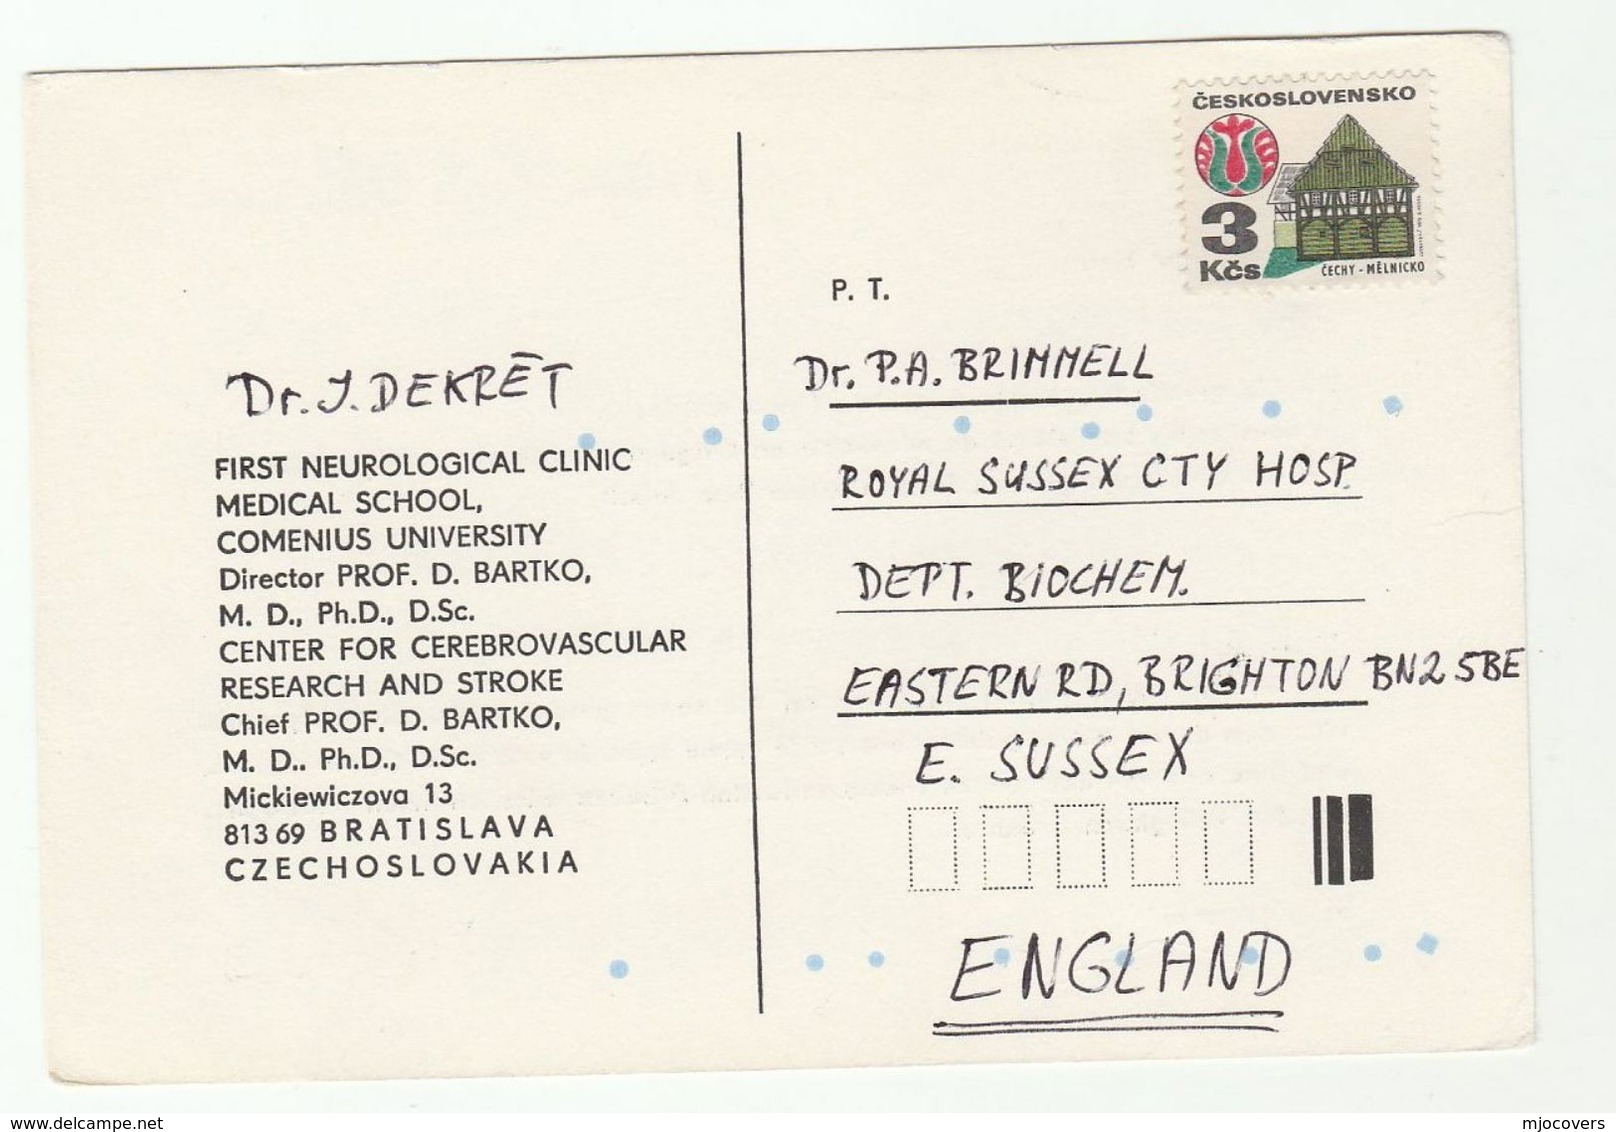 ČESKOSLOVENSKO
3
Kčs
ČECHY - MĚLNICKO
P. T.
Dr. J. DEKRĒT
FIRST NEUROLOGICAL CLINIC
MEDICAL SCHOOL,
COMENIUS UNIVERSITY
Director PROF. D. BARTKO,
M. D., Ph.D., D.Sc.
CENTER FOR CEREBROVASCULAR
RESEARCH AND STROKE
Chief PROF. D. BARTKO,
M. D.. Ph.D., D.Sc.
Mickiewiczova 13
813 69 BRATISLAVA
CZECHOSLOVAKIA
Dr. P.A. BRIMMELL
ROYAL SUSSEX CTY HOSP.
DEPT. BIOCHEM.
EASTERN RD, BRIGHTON BN2 5BE
E. SUSSEX
ENGLAND
delcampe.net
mjocovers